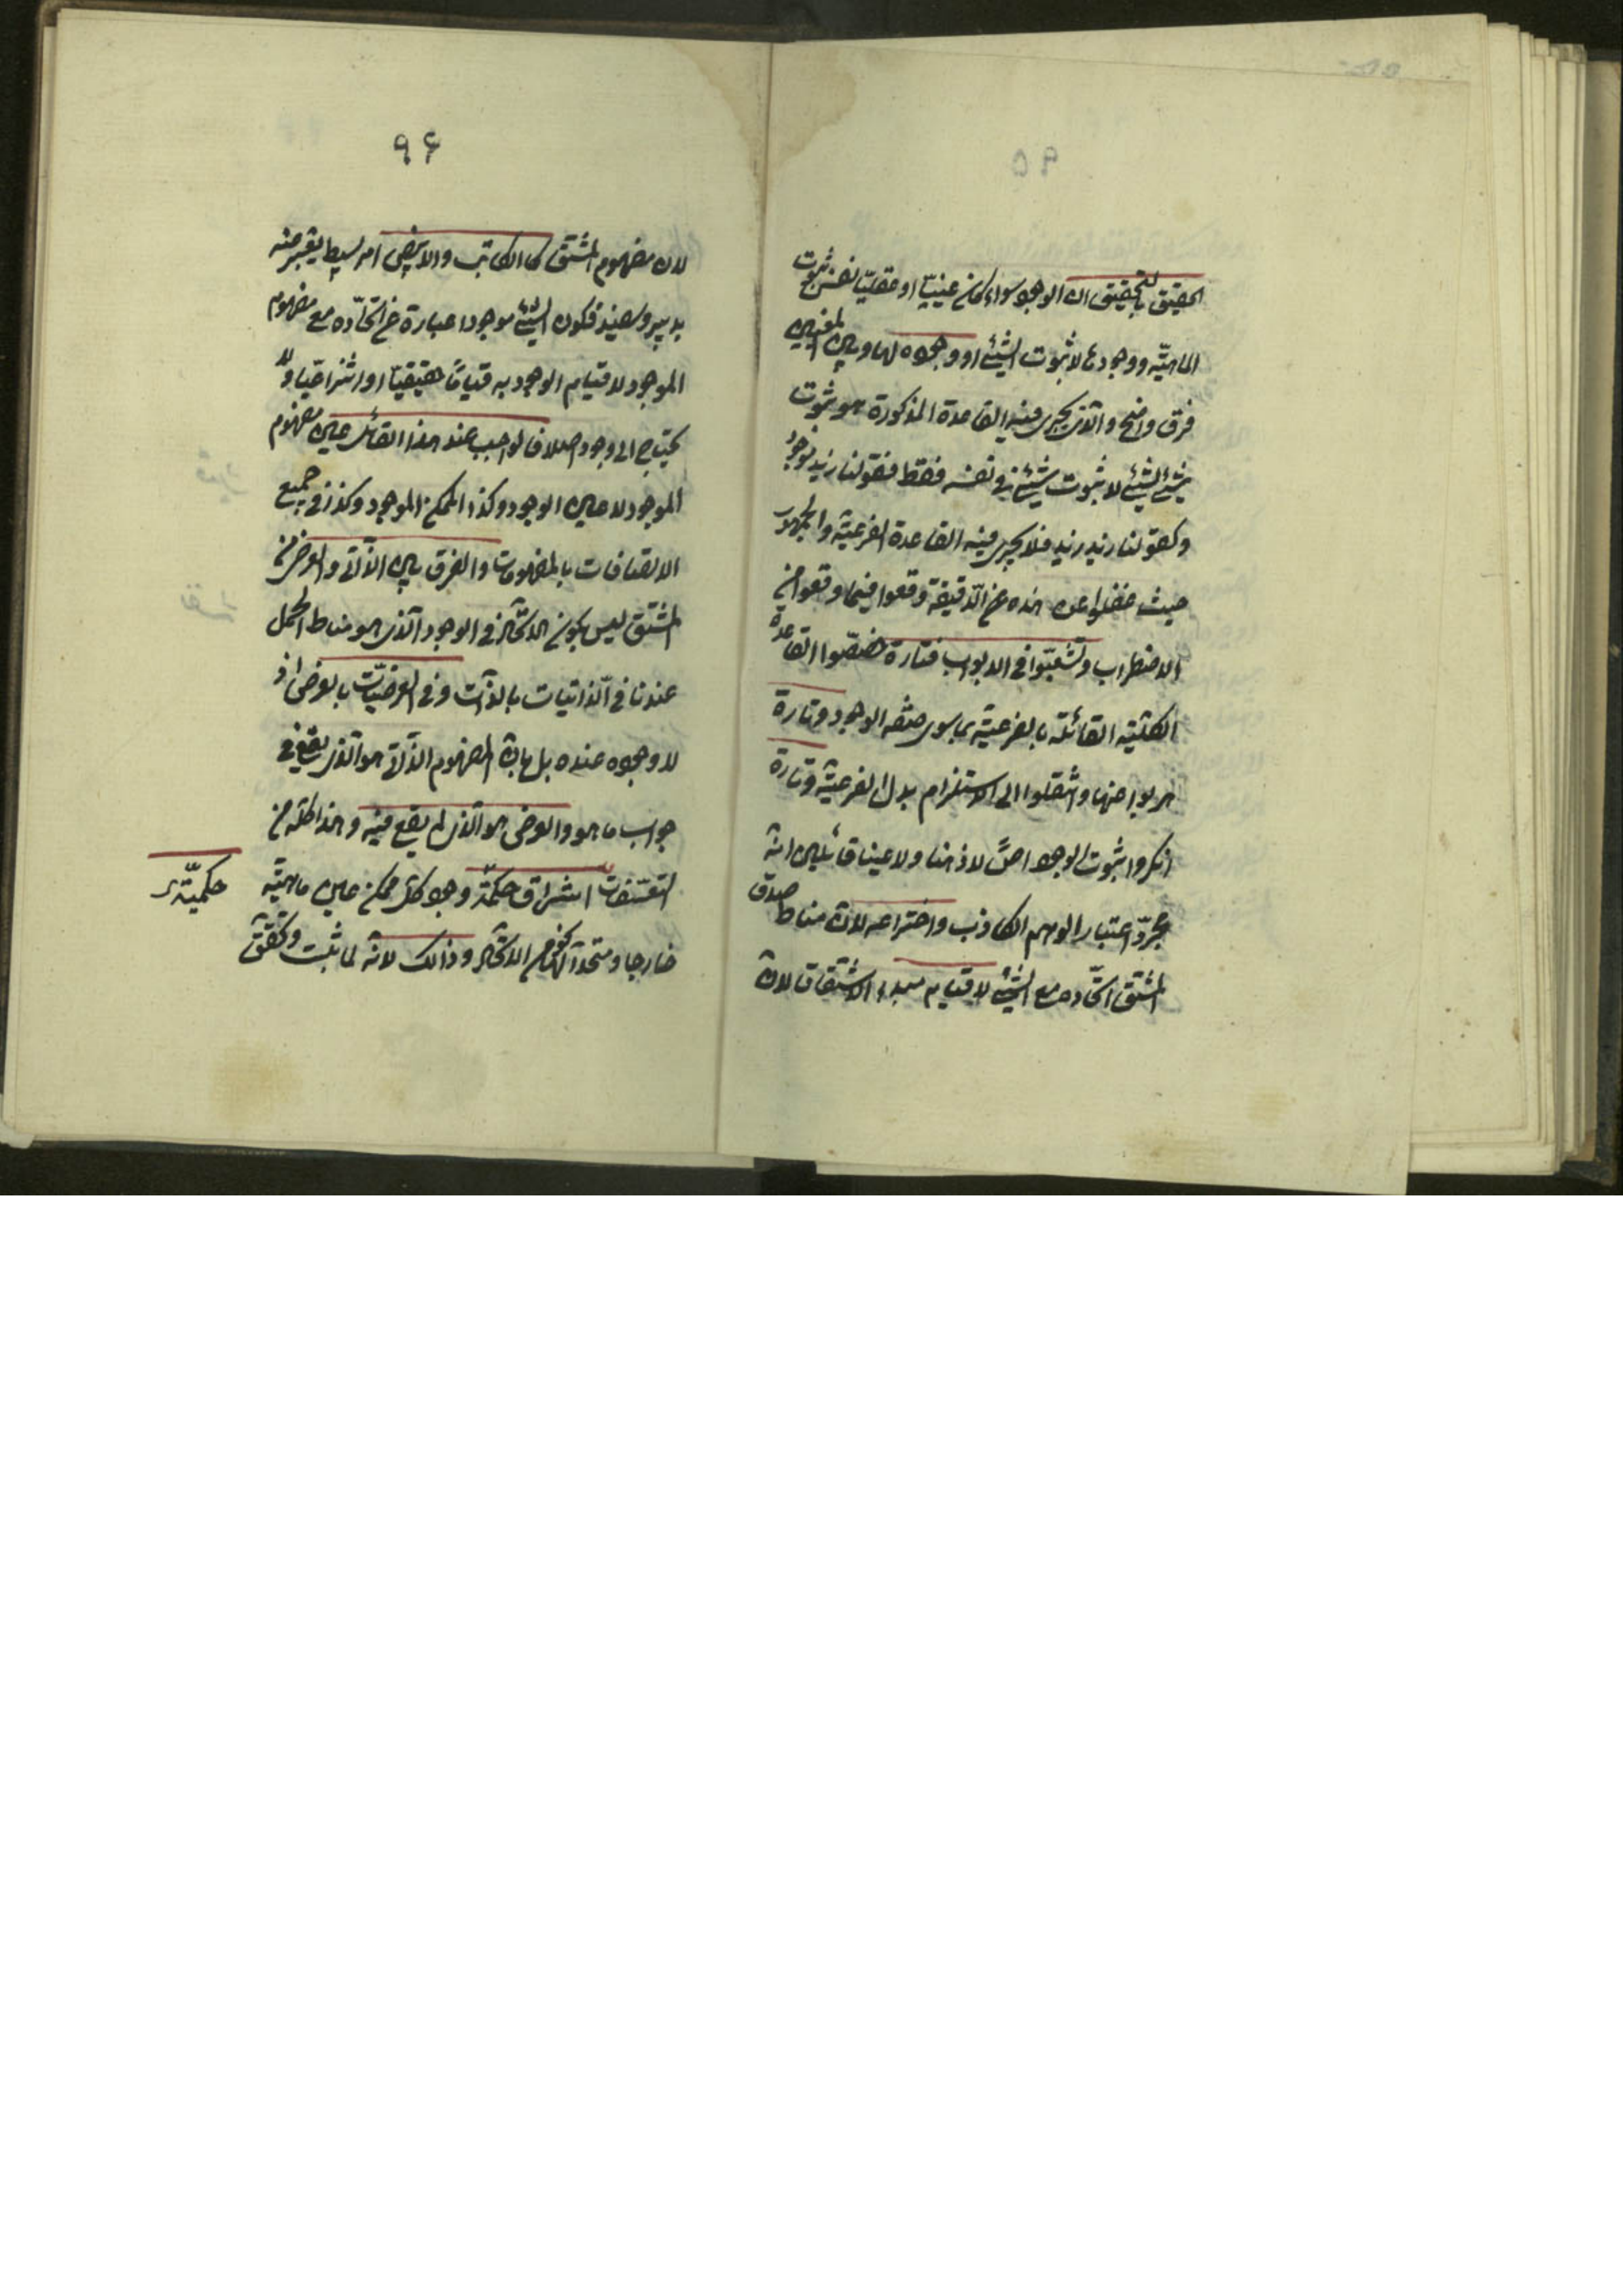 ٩٥
الحقيق بالتحقيق ان الوجود سواء كان عينيّا او عقليّا نفس ثبوت
الماهيّة ووجودها لا ثبوت الشيئ او وجوده لها وبين المعنيين
فرق واضح والّذى يجرى فيه القاعدة المذكورة هو ثبوت
شيئ لشيئ لا ثبوت شيئ فى نفسه فقط فقولنا زيد موجود
وكقولنا زيد زيد فلا يجرى فيه القاعدة الفرعيّة والجمهور
حيث غفلوا عن هذه الدّقيقة وقعوا فيما وقعوا من
الاضطراب وتشعّبوا فى الابواب فتارة خصّصوا القاعدة
الكليّة القائلة بالفرعيّة بما سوى صفة الوجود وتارة
هربوا منها وانتقلوا الى الاستلزام بدل الفرعيّة وتارة
انكروا ثبوت الوجود اصلًا لا ذهنا ولا عينا قائلين انّه
مجرّد اعتبار الوهم الكاذب واختراعه لانّ مناط صدق
المشتق اتّحاده مع الشيئ لا قيام مبدء الاشتقاق لانّ
٩۶
لان مفهوم المشتق كالكاتب والابيض امر بسيط يعبّر عنه
بدبير وسفيد فكون الشيئ موجودا عبارة عن اتّحاده مع مفهوم
الموجود لا قيام الوجود به قيامًا حقيقيّا او انتزاعيّا ولا
يحتاج الى وجود اصلا فالواجب عند هذا القائل عين مفهوم
الموجود لا عين الوجود وكذا الممكن الموجود وكذا فى جميع
الاتصافات بالمفهومات والفرق بين الذّاتى والعرضى من
المشتق ليس بكون الاتّحاد فى الوجود الّذى هو مناط الحمل
عندنا فى الذّاتيات بالذّات وفى العرضيّات بالعرض اذ
لا وجود عنده بل بانّ المفهوم الذّاتى هو الّذى يقع فى
جواب ما هو والعرضى هو الّذى لم يقع فيه وهذا كلّه من
التعسّفات اشراق حكمة وجود كل ممكن عين ماهيّته
حكميّة
خارجا ومتّحد بها نحوا من الاتّحاد وذلك لانّه لما ثبت وتحقّق